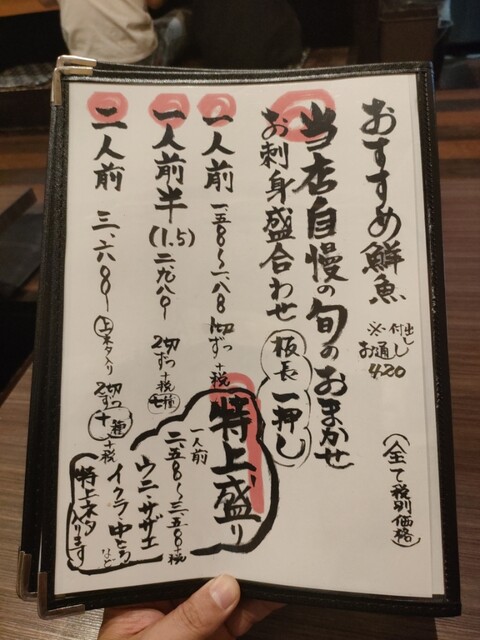 おすすめ鮮魚
※付出し
お通し
420
(全て税別価格)
当店自慢の旬のおまかせ
お刺身盛合わせ
板長一押し
一人前 一、五八〇〜一、六八〇 1切ずつ +税
一人前半(1.5) 二、九八〇 2切ずつ +税
七種
二人前 三、六八〇〜
上ネタ入り
2切ずつ +税
十種
特上盛り
一人前
二、五八〇〜三、五八〇 +税
ウニ・サザエ
イクラ・中とろ
など
特上ネタ
入ります